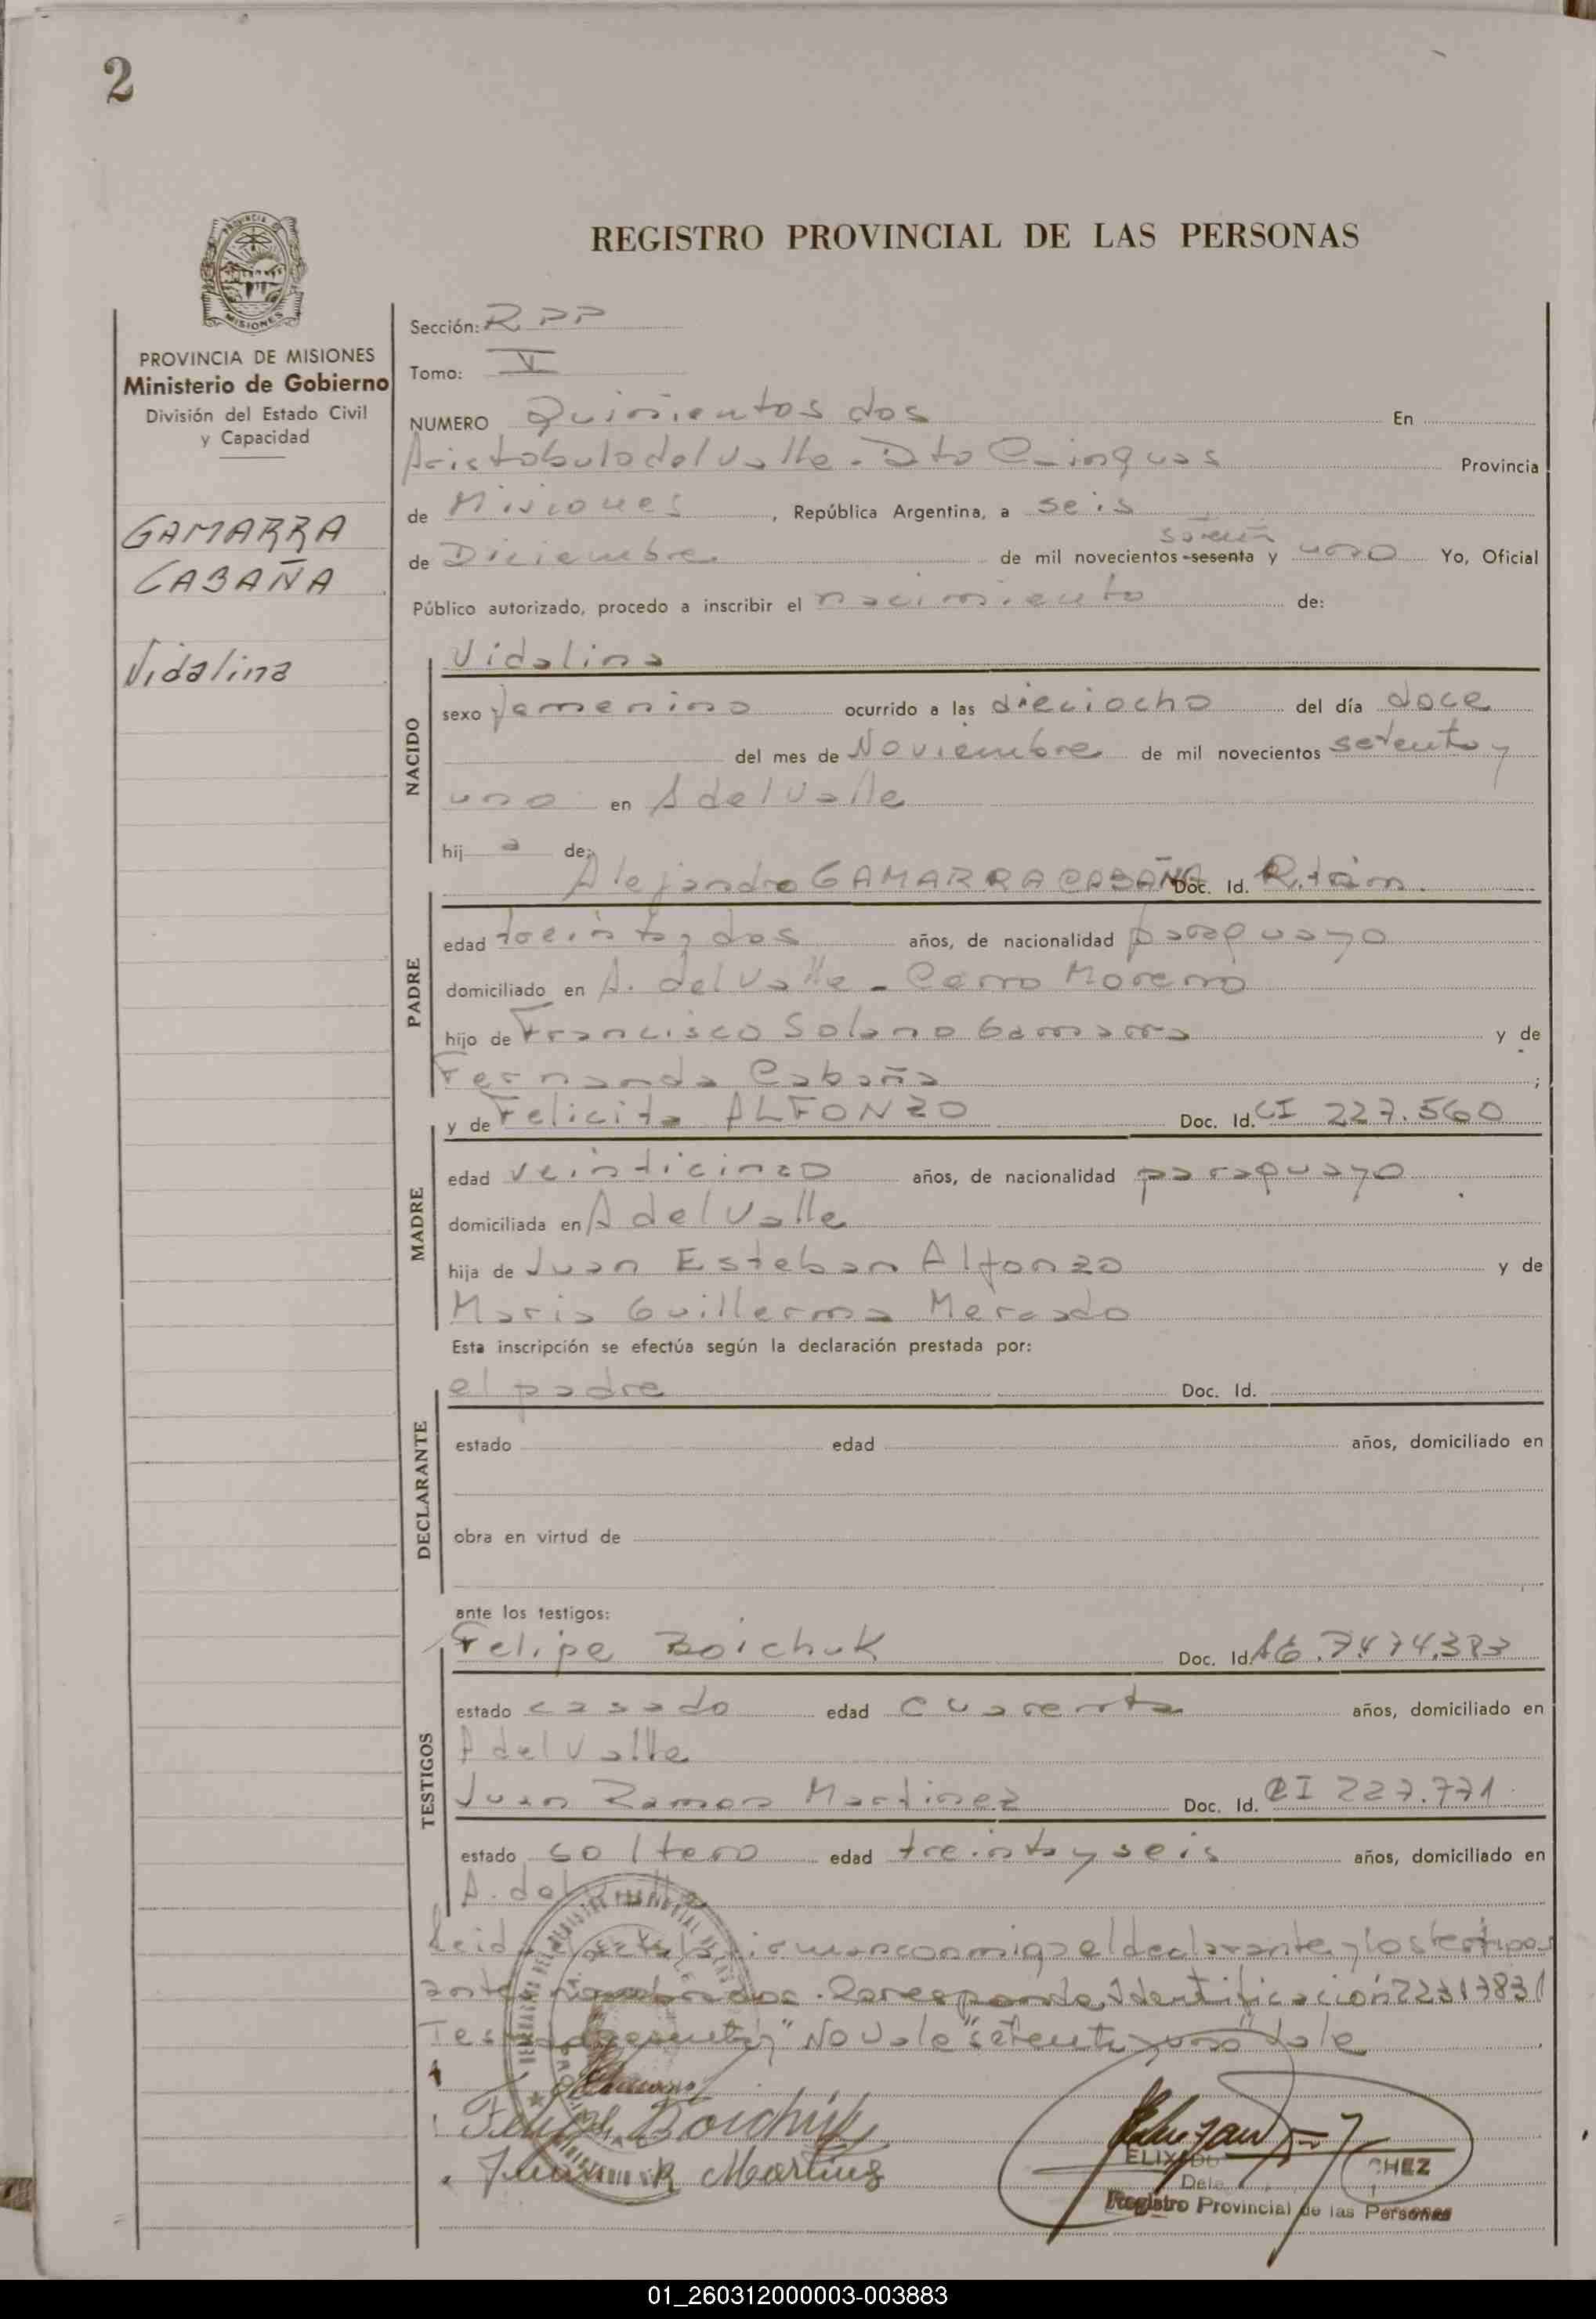 2
REGISTRO PROVINCIAL DE LAS PERSONAS
PROVINCIA DE MISIONES
Ministerio de Gobierno
División del Estado Civil
y Capacidad
GAMARRA
CABAÑA
Vidalina
Sección: RPP
Tomo: V
NUMERO Quinientos dos En
Aristobulo del Valle - Dto Cainguas Provincia
de Misiones, República Argentina, a seis
de Diciembre de mil novecientos sesenta y uno Yo, Oficial
Público autorizado, procedo a inscribir el nacimiento de:
NACIDO
Vidalina
sexo femenino ocurrido a las dieciocho del día doce
del mes de Noviembre de mil novecientos setenta y
uno en A del Valle
hij a de:
PADRE
Alejandro GAMARRA CABAÑA Doc. Id.
edad treinta y dos años, de nacionalidad paraguayo
domiciliado en A. del Valle - Cerro Moreno
hijo de Francisco Solano Gamarra y de
Fernanda Cabaña ;
MADRE
y de Felicita ALFONZO Doc. Id. CI 227.560
edad veinticinco años, de nacionalidad paraguayo
domiciliada en A del Valle
hija de Juan Esteban Alfonzo y de
Maria Guillerma Mercado
Esta inscripción se efectúa según la declaración prestada por:
DECLARANTE
el padre Doc. Id.
estado edad años, domiciliado en
obra en virtud de
ante los testigos:
TESTIGOS
Felipe Boichuk Doc. Id. 7.474.383
estado casado edad cuarenta años, domiciliado en
A del Valle
Juan Ramon Martinez Doc. Id. CI 227.771
estado soltero edad treinta y seis años, domiciliado en
A. del Valle
conmigo el declarante y los testigos
antes nombrados. Corresponde Identificación 22317831
No Vale "setenta y uno" Vale
Felipe Boichuk
Juan R Martinez
CHEZ
Registro Provincial de las Personas
01_260312000003-003883